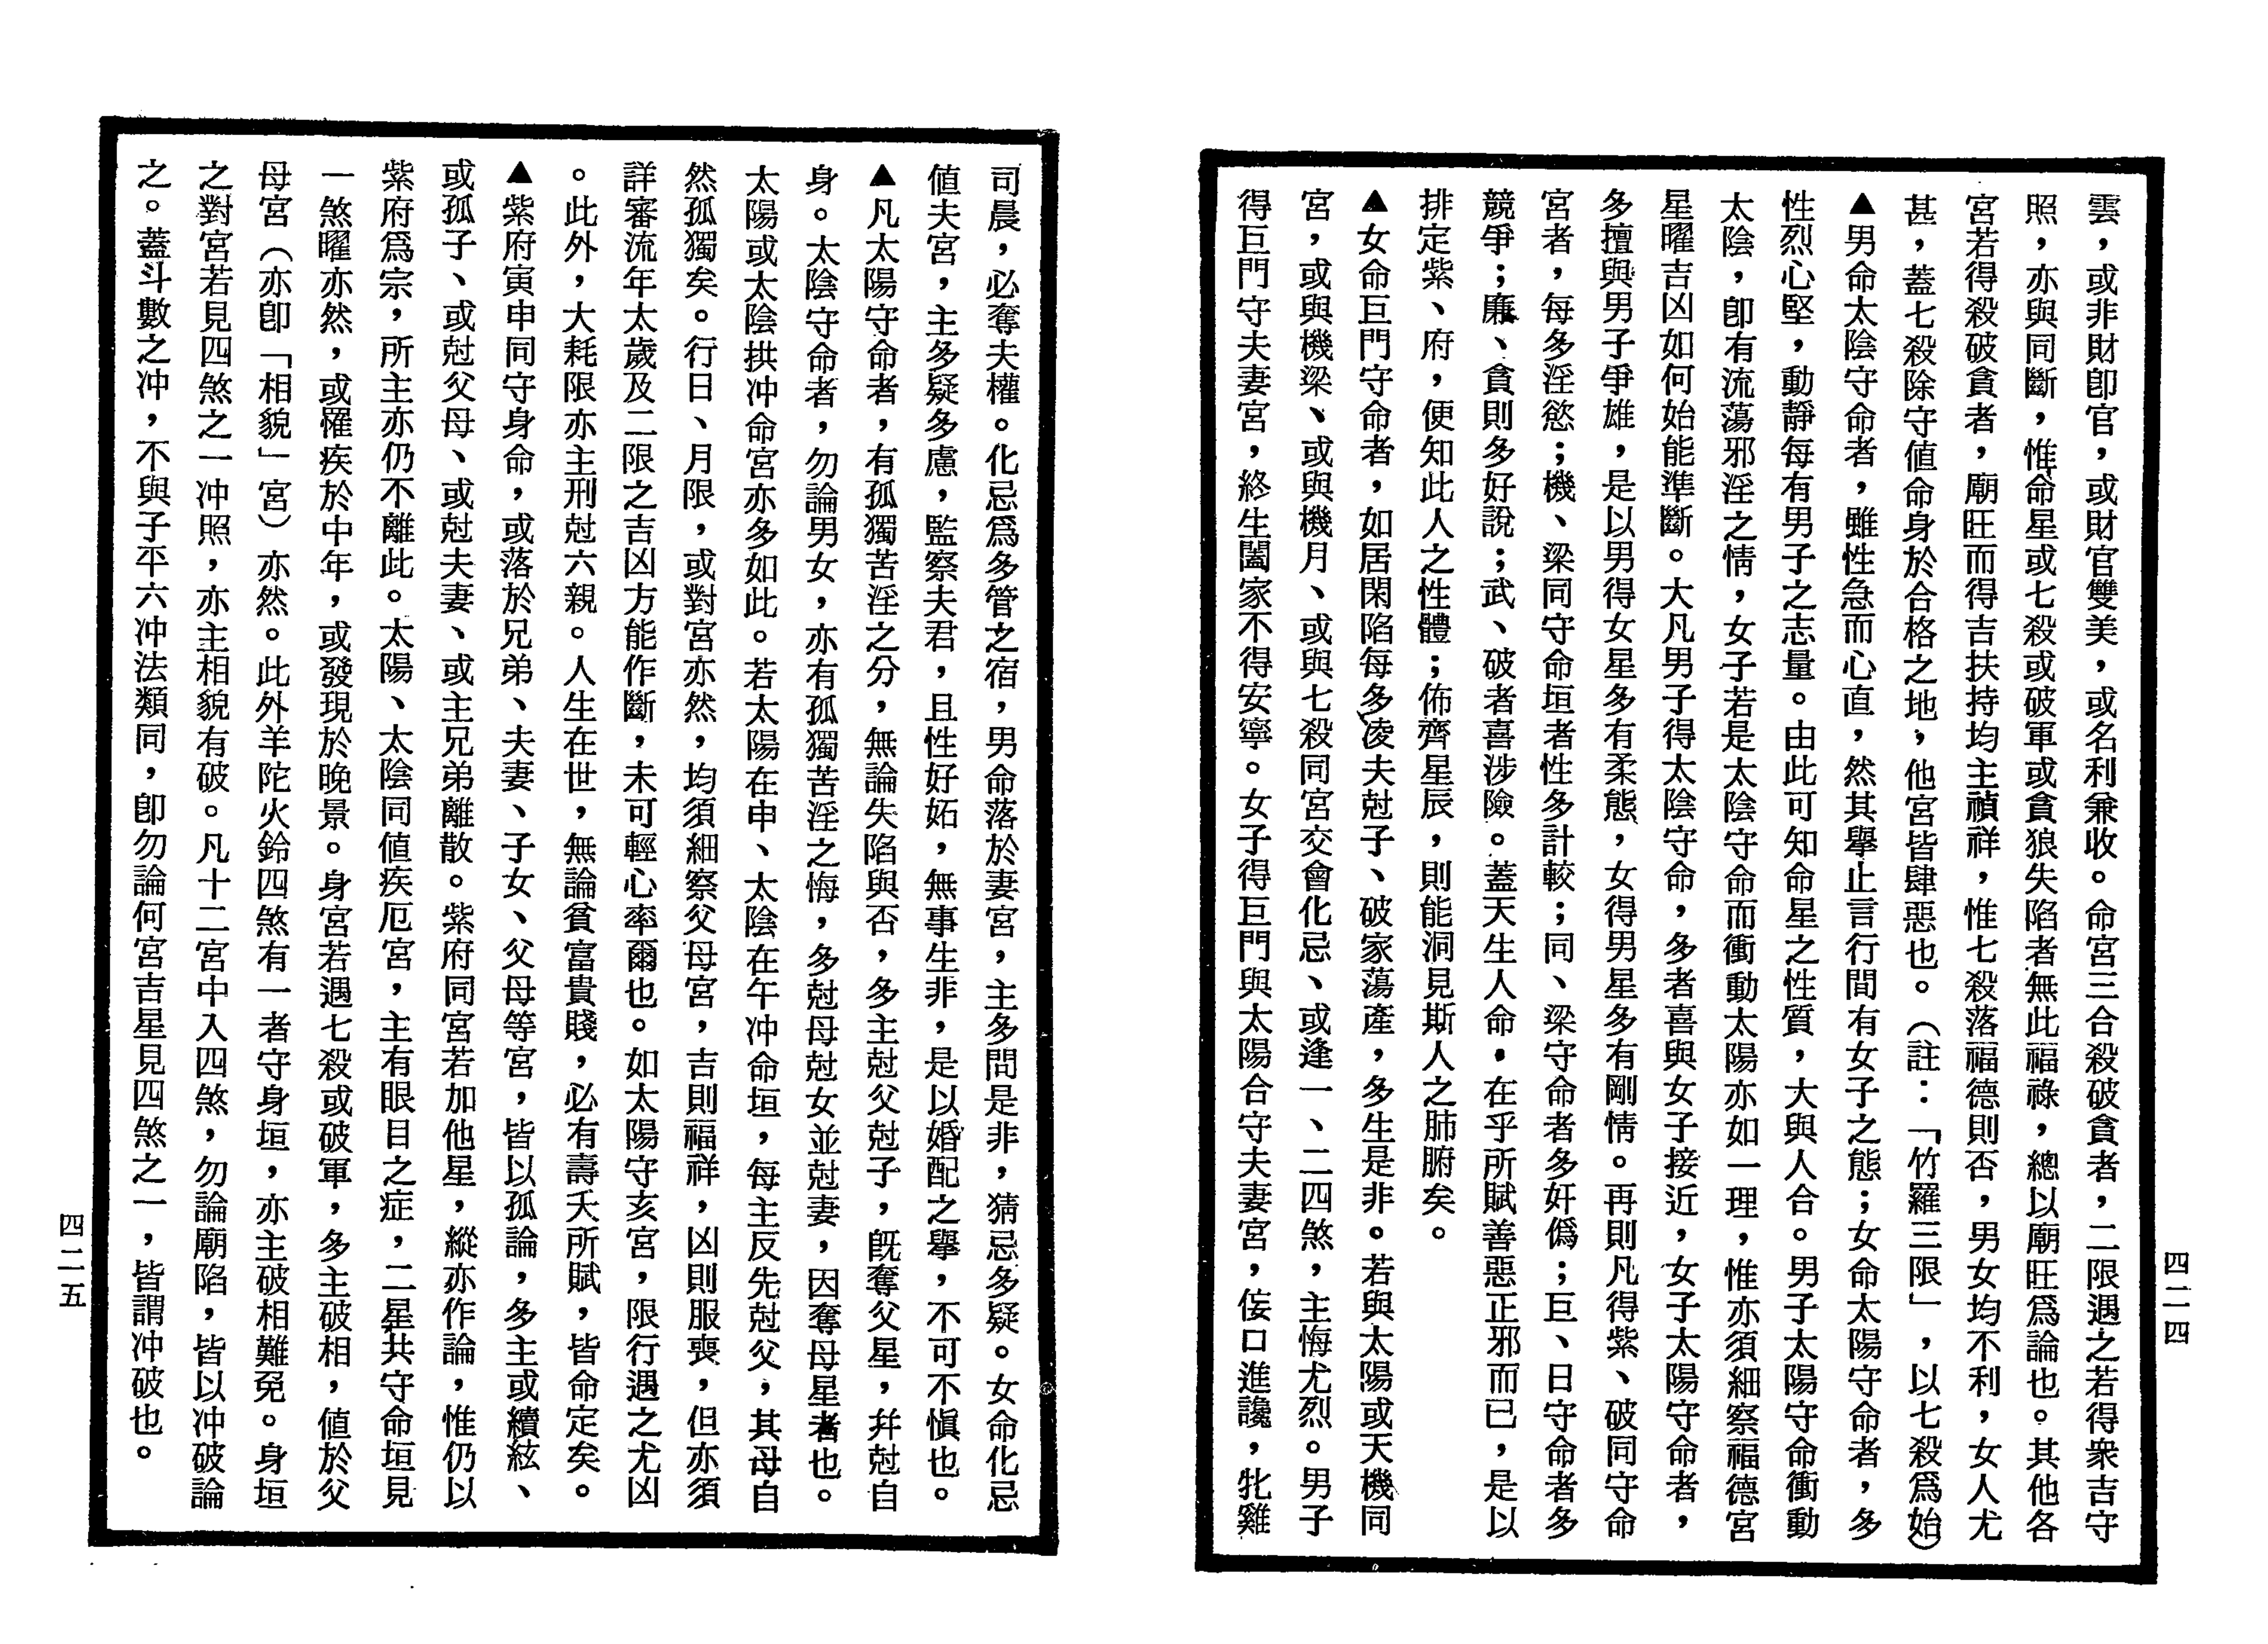 雲，或非財卽官，或財官雙美，或名利兼收。命宮三合殺破貪者，二限遇之若得衆吉守
照，亦與同斷，惟命星或七殺或破軍或貪狼失陷者無此福祿，總以廟旺爲論也。其他各
宮若得殺破貪者，廟旺而得吉扶持均主禎祥，惟七殺落福德則否，男女均不利，女人尤
甚，蓋七殺除守値命身於合格之地，他宮皆肆惡也。（註：「竹羅三限」，以七殺爲始）
▲男命太陰守命者，雖性急而心直，然其舉止言行間有女子之態；女命太陽守命者，多
性烈心堅，動靜每有男子之志量。由此可知命星之性質，大與人合。男子太陽守命衝動
太陰，卽有流蕩邪淫之情，女子若是太陰守命而衝動太陽亦如一理，惟亦須細察福德宮
星曜吉凶如何始能準斷。大凡男子得太陰守命，多者喜與女子接近，女子太陽守命者，
多擅與男子爭雄，是以男得女星多有柔態，女得男星多有剛情。再則凡得紫、破同守命
宮者，每多淫慾；機、梁同守命垣者性多計較；同、梁守命者多奸僞；巨、日守命者多
競爭；廉、貪則多好說；武、破者喜涉險。蓋天生人命，在乎所賦善惡正邪而已，是以
排定紫、府，便知此人之性體；佈齊星辰，則能洞見斯人之肺腑矣。
▲女命巨門守命者，如居閑陷每多凌夫尅子、破家蕩產，多生是非。若與太陽或天機同
宮，或與機梁、或與機月、或與七殺同宮交會化忌、或逢一、二四煞，主悔尤烈。男子
得巨門守夫妻宮，終生闔家不得安寧。女子得巨門與太陽合守夫妻宮，侫口進讒，牝雞
四二四
司晨，必奪夫權。化忌爲多管之宿，男命落於妻宮，主多問是非，猜忌多疑。女命化忌
値夫宮，主多疑多慮，監察夫君，且性好妬，無事生非，是以婚配之舉，不可不愼也。
▲凡太陽守命者，有孤獨苦淫之分，無論失陷與否，多主尅父尅子，旣奪父星，幷尅自
身。太陰守命者，勿論男女，亦有孤獨苦淫之悔，多尅母尅女並尅妻，因奪母星者也。
太陽或太陰拱冲命宮亦多如此。若太陽在申、太陰在午冲命垣，每主反先尅父，其母自
然孤獨矣。行日、月限，或對宮亦然，均須細察父母宮，吉則福祥，凶則服喪，但亦須
詳審流年太歲及二限之吉凶方能作斷，未可輕心率爾也。如太陽守亥宮，限行遇之尤凶
。此外，大耗限亦主刑尅六親。人生在世，無論貧富貴賤，必有壽夭所賦，皆命定矣。
▲紫府寅申同守身命，或落於兄弟、夫妻、子女、父母等宮，皆以孤論，多主或續絃、
或孤子、或尅父母、或尅夫妻、或主兄弟離散。紫府同宮若加他星，縱亦作論，惟仍以
紫府爲宗，所主亦仍不離此。太陽、太陰同値疾厄宮，主有眼目之症，二星共守命垣見
一煞曜亦然，或罹疾於中年，或發現於晚景。身宮若遇七殺或破軍，多主破相，値於父
母宮（亦卽「相貌」宮）亦然。此外羊陀火鈴四煞有一者守身垣，亦主破相難免。身垣
之對宮若見四煞之一冲照，亦主相貌有破。凡十二宮中入四煞，勿論廟陷，皆以冲破論
之。蓋斗數之冲，不與子平六冲法類同，卽勿論何宮吉星見四煞之一，皆謂冲破也。
四二五